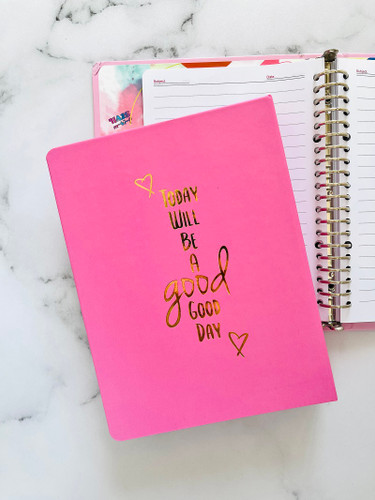 Subject:
Date:
TODAY
WILL
BE
A
good
GOOD
DAY